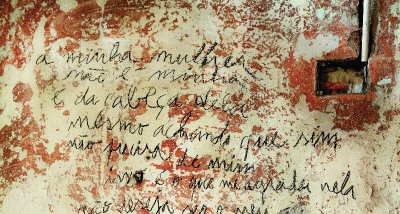 a minha mulher
não é minha
é da cabeça dela
mesmo achando que sim
não precisa de mim
isso é o que me agrada nela